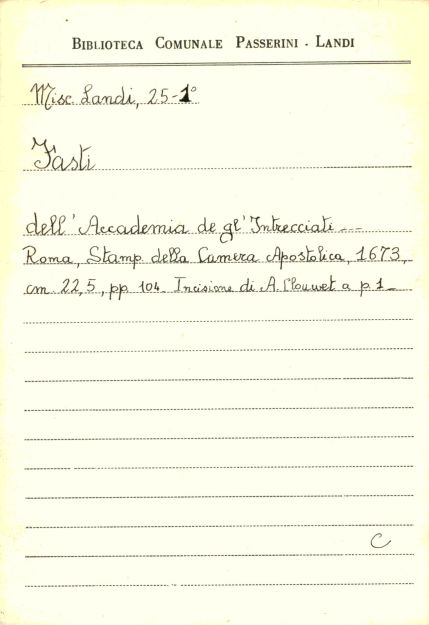 BIBLIOTECA COMUNALE PASSERINI - LANDI
Misc. Landi, 25-1°
Fasti
dell'Accademia de gl'Intrecciati ---
Roma, Stamp. della Camera Apostolica, 1673,
cm. 22,5, pp. 104. Incisione di A. Clouwet a p. 1_
C